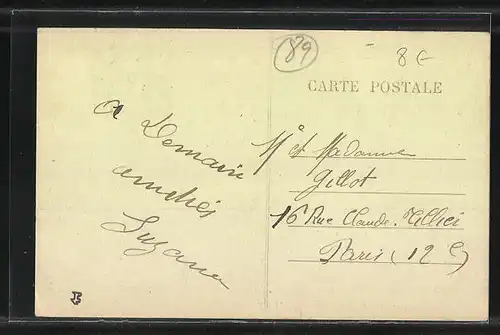 89
8€
CARTE POSTALE
a Demain
amitiés
Suzanne
Mr et Madame
Gillot
16 Rue Claude Tillier
Paris (12e)